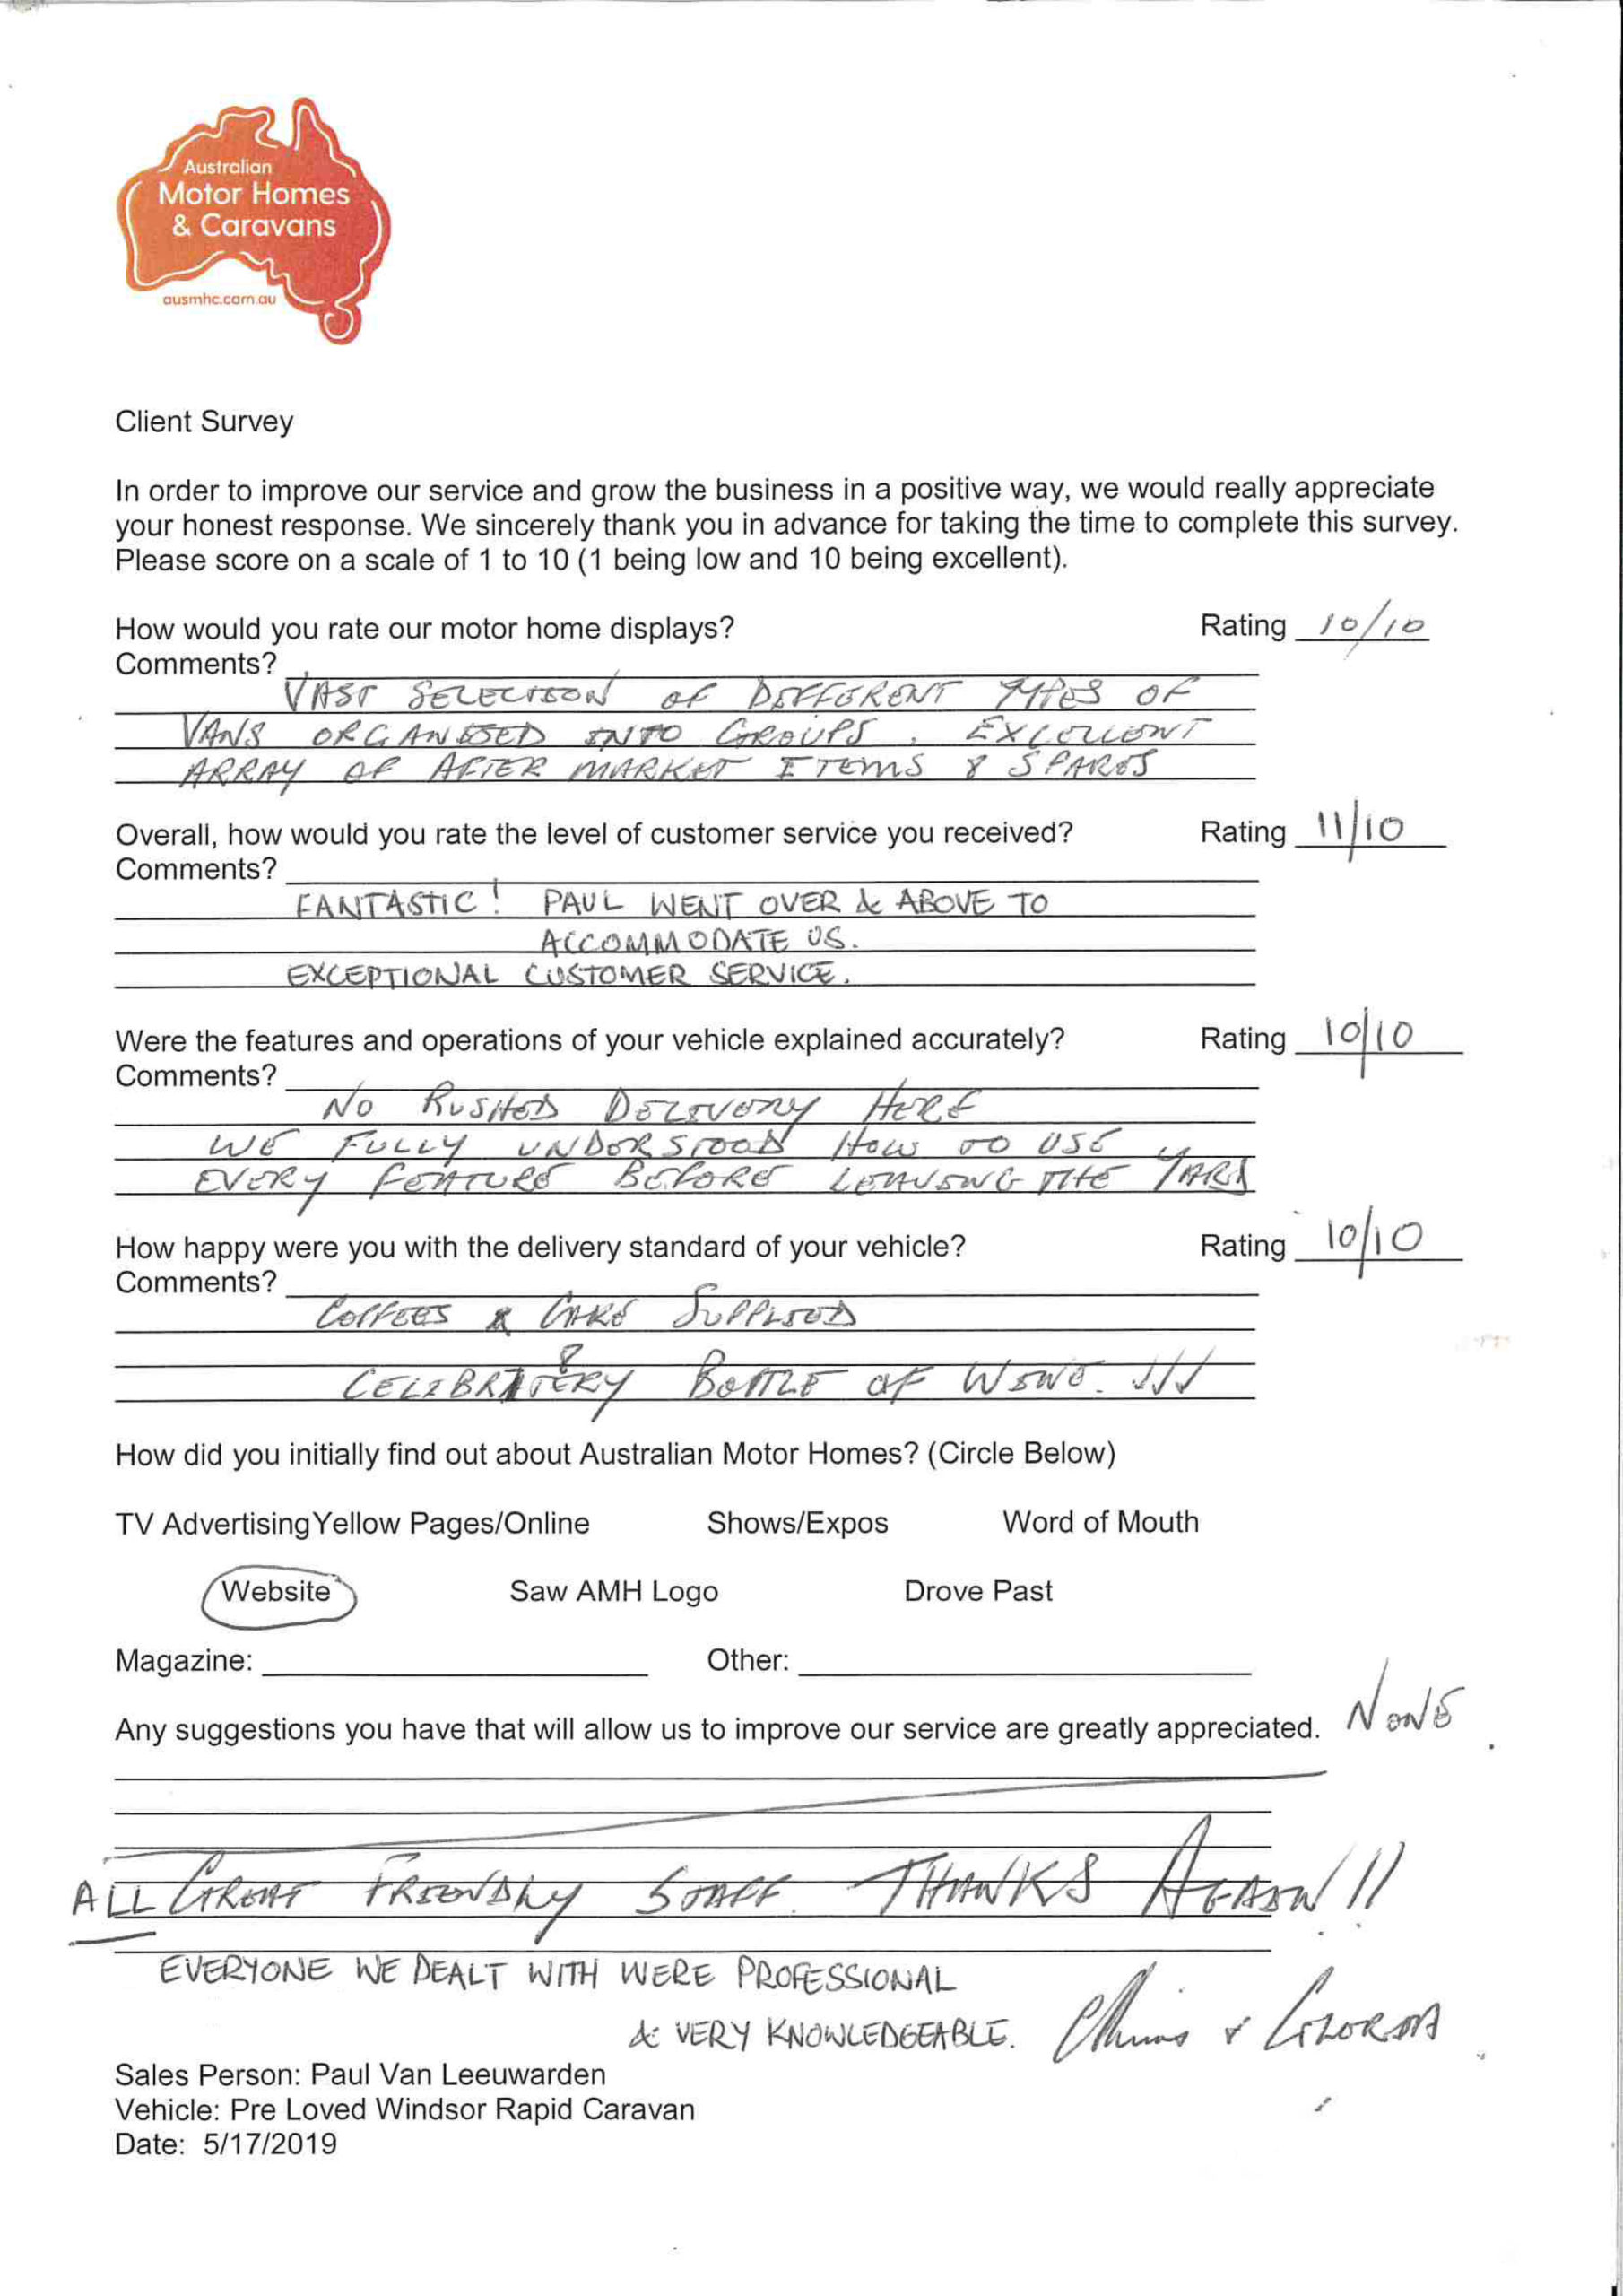 Australian
Motor Homes
& Caravans
ausmhc.com.au
Client Survey
In order to improve our service and grow the business in a positive way, we would really appreciate
your honest response. We sincerely thank you in advance for taking the time to complete this survey.
Please score on a scale of 1 to 10 (1 being low and 10 being excellent).
How would you rate our motor home displays? Rating 10/10
Comments?
VAST SELECTION OF DIFFERENT TYPES OF
VANS ORGANISED INTO GROUPS. EXCELLENT
ARRAY OF AFTER MARKET ITEMS & SPARES
Overall, how would you rate the level of customer service you received? Rating 11/10
Comments?
FANTASTIC! PAUL WENT OVER & ABOVE TO
ACCOMMODATE US.
EXCEPTIONAL CUSTOMER SERVICE.
Were the features and operations of your vehicle explained accurately? Rating 10/10
Comments?
NO RUSHED DELIVERY HERE
WE FULLY UNDERSTOOD HOW TO USE
EVERY FEATURE BEFORE LEAVING THE YARD
How happy were you with the delivery standard of your vehicle? Rating 10/10
Comments?
COFFEES & CAKE SUPPLIED
&
CELEBRATERY BOTTLE OF WINE. !!!
How did you initially find out about Australian Motor Homes? (Circle Below)
TV Advertising Yellow Pages/Online Shows/Expos Word of Mouth
Website Saw AMH Logo Drove Past
Magazine: Other:
Any suggestions you have that will allow us to improve our service are greatly appreciated. NONE.
ALL GREAT FRIENDLY STAFF. THANKS AGAIN!!!
EVERYONE WE DEALT WITH WERE PROFESSIONAL
& VERY KNOWLEDGEABLE. & GLORIA
Sales Person: Paul Van Leeuwarden
Vehicle: Pre Loved Windsor Rapid Caravan
Date: 5/17/2019